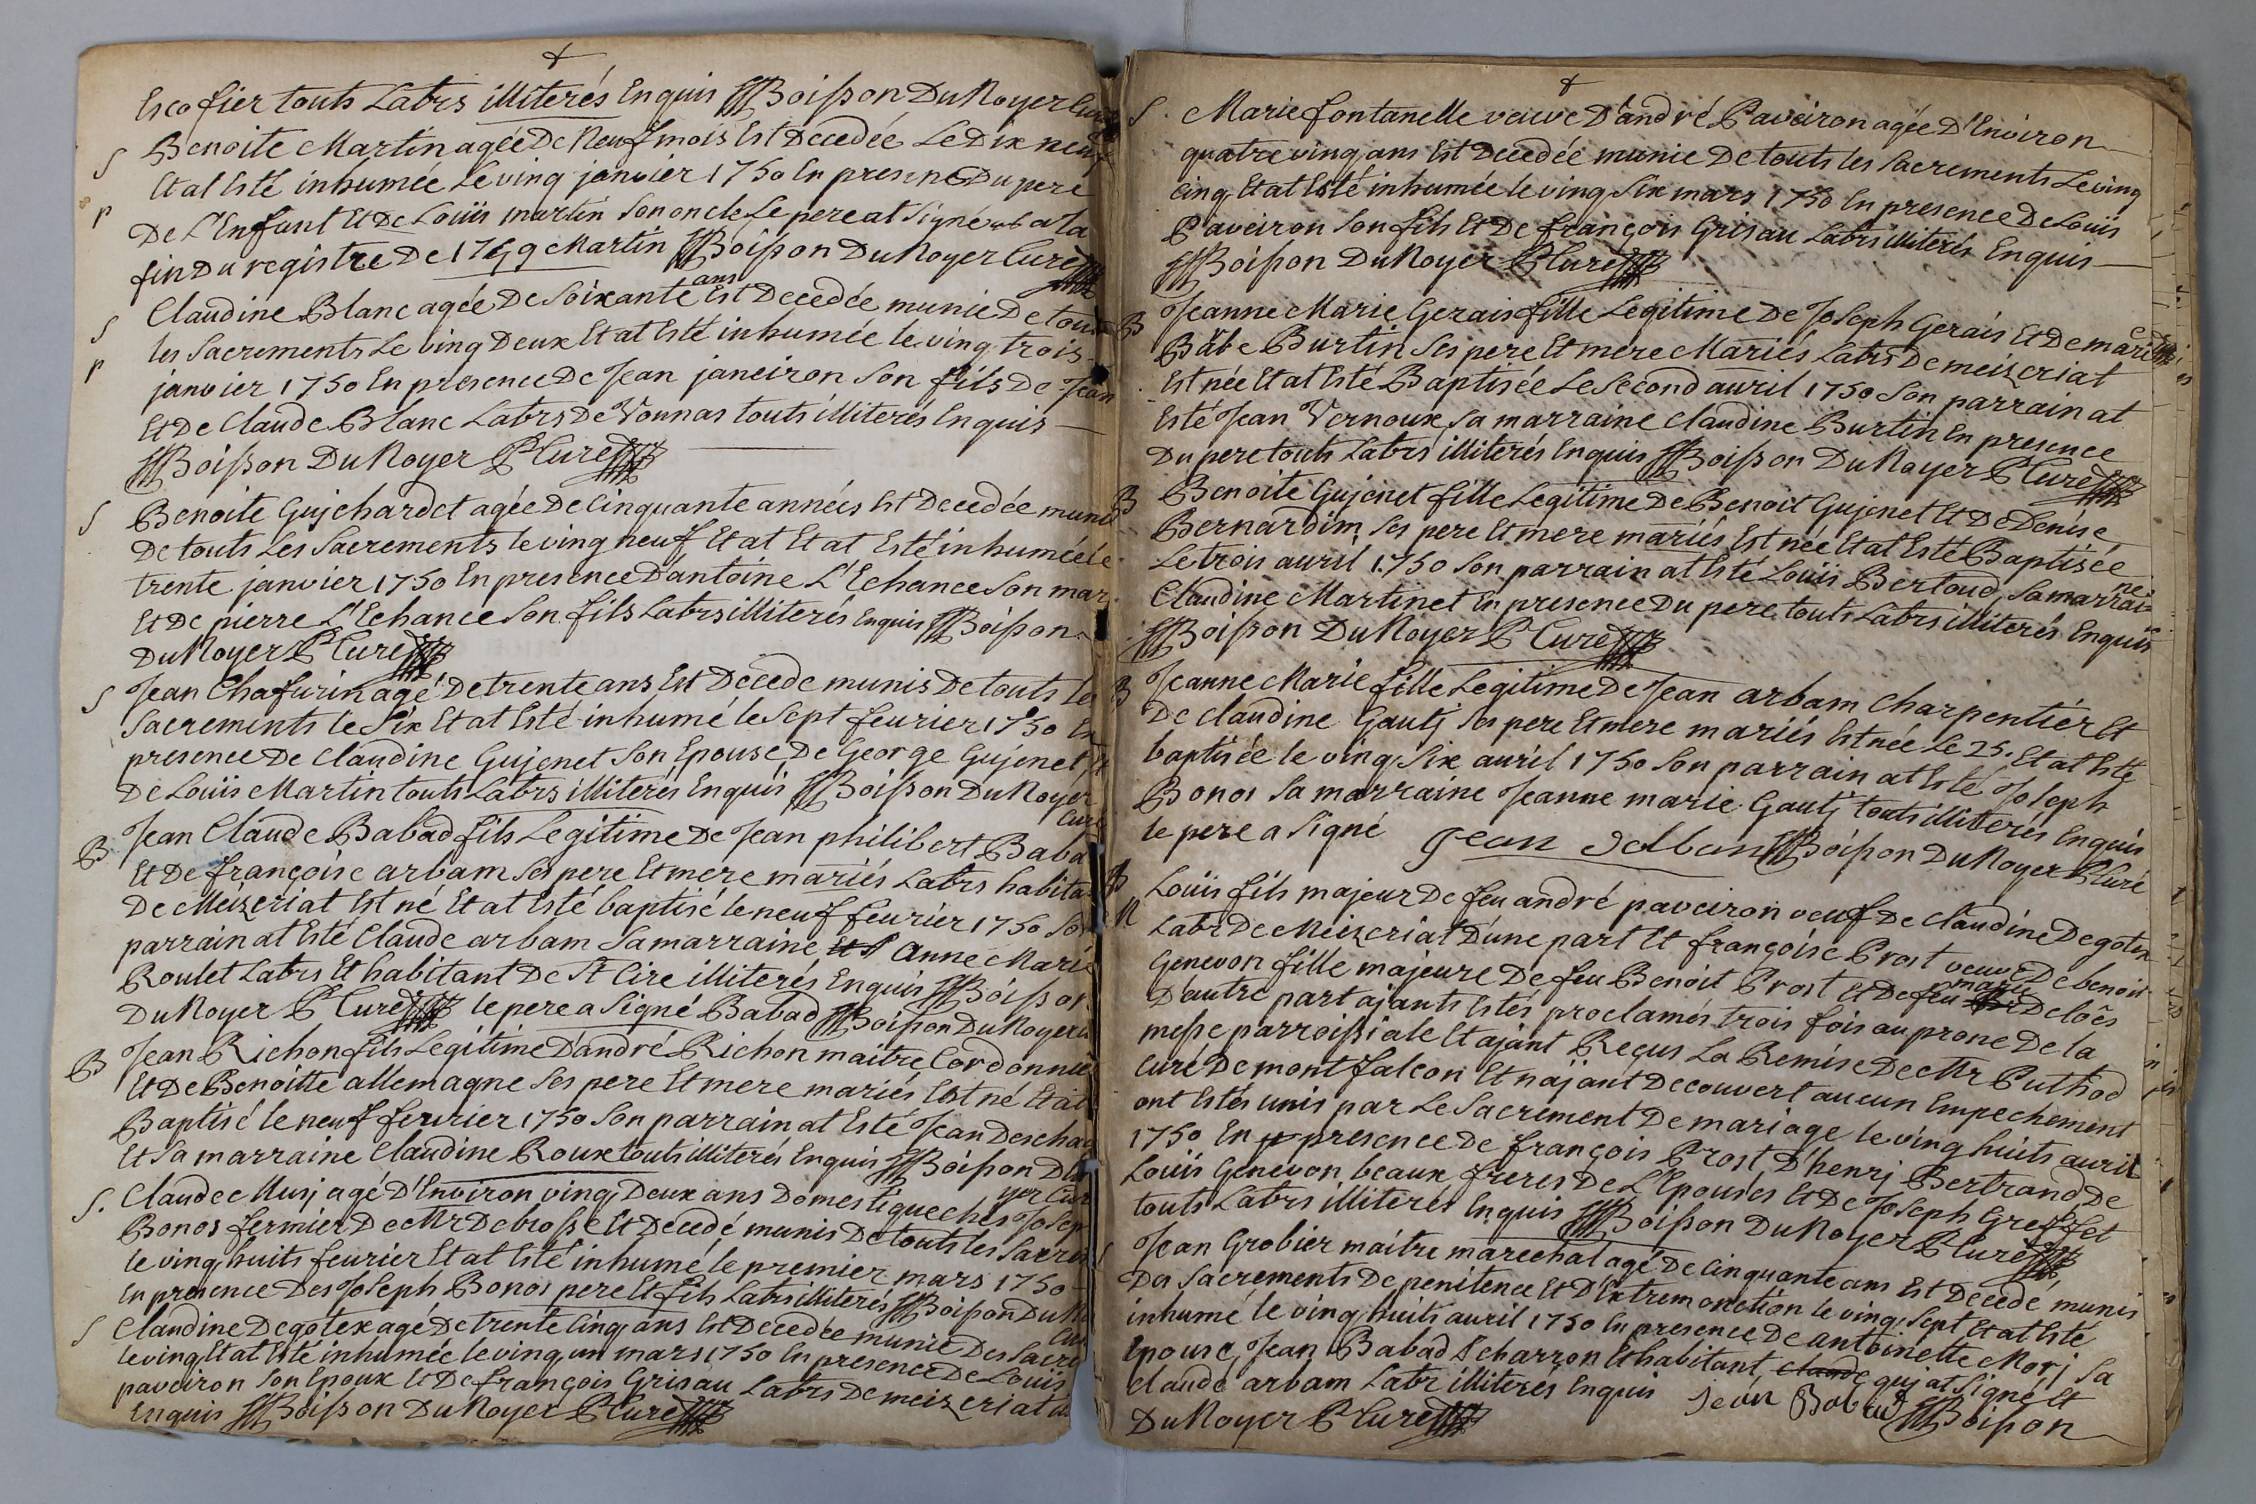 Escofier touts Labrs illiterés Enquis Boisson DuNoyer Curé
S Benoite Martin agée De Neuf mois Est Decedée Le Dix neuf
Et at Esté inhumée Le ving janvier 1750 En presence Du pere
P De L'Enfant Et De Loüis martin Son oncle Le pere at Signé a la
fin Du registre De 1749 Martin Boisson DuNoyer Curé
ans
S Claudine Blanc agée De Soixante Est Decedée munie De touts
les Sacrements Le ving Deux Et at Esté inhumée le ving trois
P janvier 1750 En presence De Jean janeiron Son fils De Jean
Et De Claude Blanc Labrs De Vonnas touts illiterés Enquis
Boisson DuNoyer P Curé
S Benoite Gujchardet agée De Cinquante années Est Decedée munie
De touts Les Sacrements le ving neuf Et at Et at Esté inhumée le
trente janvier 1750 En presence D'antoine L'Echance Son mari
Et De pierre L'Echance Son fils Labrs illiterés Enquis Boisson
DuNoyer P Curé
S Jean Chafurin agé De trente ans Est Decedé munis De touts les
Sacrements le Six Et at Esté inhumé le Sept feurier 1750 En
presence De Claudine Gujenet Son Epouse De George Gujenet Et
De Loüis Martin touts Labrs illiterés Enquis Boisson DuNoyer
Curé
B Jean Claude Babad fils Legitime De Jean philibert Baba
Et De françoise arbam Ses pere Et mere mariés Labrs habita
De Méizeriat Est né Et at Esté baptisé le neuf feurier 1750 Son
parrain at Esté Claude arbam Sa marraine Anne Marie
Roulet Labrs Et habitant De St Cire illiterés Enquis Boisson
DuNoyer P Curé le pere a Signé Babad Boisson DuNoyer
B Jean Richon fils Legitime D'andré Richon maitre Cordonnier
Et De Benoitte allemagne Ses pere Et mere mariés Est né Et at
Baptisé le neuf feurier 1750 Son parrain at Esté Jean Descha
Et Sa marraine Claudine Roux touts illiterés Enquis Boisson DuNo
yer Curé
S. Claude Musj agé D'Environ ving Deux ans Domestique chés Josep
Bonos fermier De Mr Debrosse Et Decedé munis De touts les Sacre
le ving huits feurier Et at Esté inhumé le premier mars 1750
En presence Des Joseph Bonos pere Et fils Labrs illiterés Boisson DuNo
Curé
S Claudine Degotex agé De trente Cinq ans Est Decedée munie Des Sacre
le ving Et at Esté inhumée le ving un mars 1750 En presence De Loüis
paveiron Son Epoux Et De françois Grisau Labrs De meizeriat
Enquis Boisson DuNoyer P Curé
S. Marie fontanelle veuve D'andré Paveiron agée D'Environ
quatre ving ans Est Decedée munie De touts les Sacrements Le ving
Cinq Et at Esté inhumée le ving Six mars 1750 En presence De Loüis
Paveiron Son fils Et De françois Grisau Labrs illiterés Enquis
Boisson DuNoyer P Curé
B Jeanne Marie Gerais fille Legitime De Joseph Gerais Et De marie
Bäbe Burtin Ses pere Et mere Mariés Labrs De meizeriat
Est née Et at Esté Baptisée Le Second auril 1750 Son parrain at
Esté Jean Vernoux Sa marraine Claudine Burtin En presence
Du pere touts Labrs illiterés Enquis Boisson DuNoyer P Curé
B Benoite Gujenet fille Legitime De Benoit Gujenet Et De Denise
Bernardim Ses pere Et mere mariés Est née Et at Esté Baptisée
Le trois auril 1750 Son parrain at Esté Loüis Bertoud, Sa marrai=
ne
Claudine Martinet En presence Du pere touts Labrs illiterés Enquis
Boisson DuNoyer P Curé
B Jeanne Marie fille Legitime De Jean arbam Charpentier Et
De Claudine Gautj Ses pere Et mere mariés Est née Le 25. Et at Esté
baptisée le ving Six auril 1750 Son parrain at Esté Joseph
Bonos Sa marraine Jeanne marie Gautj touts illiterés Enquis
le pere a Signé Jean Arban Boisson DuNoyer P Curé
Loüis fils majeur De feu andré paveiron veuf De Claudine Degotex
M Labr De Meizeriat D'une part Et françoise Prost veuve De benoit
Genevon fille majeure De feu Benoit Prost Et De feu marie Deloës
D'autre part ajants Estés proclamés trois fois au prone De la
messe parroissiale Et ajant Reçus La Remise De Mr Puthod
Curé De montfalcon Et n'ajant Decouvert aucun Empechement
ont Estés unis par Le Sacrement De mariage le ving huits auril
1750 En presence De françois Prost, D'henrj Bertrand De
Loüis Genevon beaux freres De L'Epouses Et De Joseph Greffet
touts Labrs illiterés Enquis Boisson DuNoyer P Curé
S Jean Grobier maitre marechal agé De Cinquante ans Est Decedé munis
Des Sacrements De penitence Et D'Extremonction le ving Sept Et at Esté
inhumé le ving huits auril 1750 En presence De antoinette Morj Sa
Epouse, Jean Babad Charron Et habitant, Claude quj at Signé Et
Claude arbam Labr illiterés Enquis Jean Babad Boisson
DuNoyer P Curé